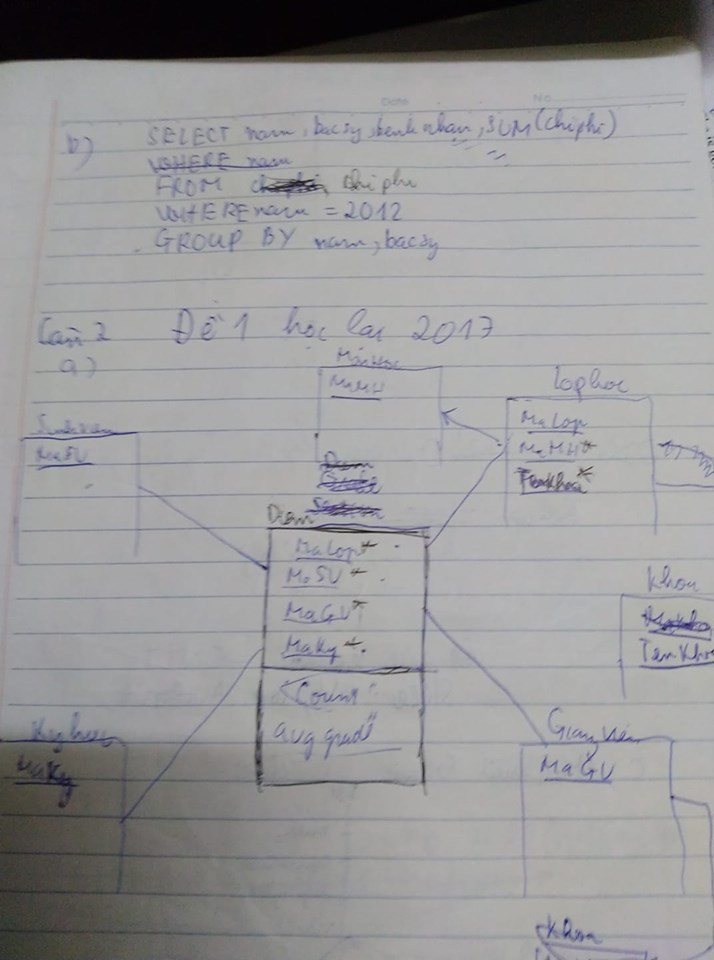 Date No.
b) SELECT nam, bacsy, benhnhan, SUM(chiphi)
WHERE nam
FROM chiphi
WHERE nam = 2012
GROUP BY nam, bacsy
Đề 1 học lại 2017
a)
MaMH
Lophoc
MaLop
MaMH*
TenKhoa*
MaSV
Diem
MaLop*
MaSV*
MaGV*
MaKy*
Count
avg grade
Khoa
TenKhoa
Kyhoc
MaKy
Giangvien
MaGV
Khoa